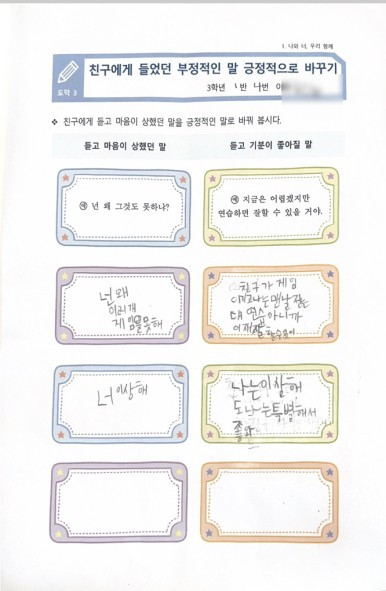 1. 나와 너, 우리 함께
친구에게 들었던 부정적인 말 긍정적으로 바꾸기
도약 3
3학년 1반 나번 이
❖ 친구에게 듣고 마음이 상했던 말을 긍정적인 말로 바꿔 봅시다.
듣고 마음이 상했던 말
듣고 기분이 좋아질 말
예 넌 왜 그것도 못하냐?
예 지금은 어렵겠지만
연습하면 잘할 수 있을 거야.
넌 왜
이러개
게임을 못해
친구가 게임
나는 맨날
연습
아니까
너 이상해
나는 이상해
도 나는 특별해서
좋아